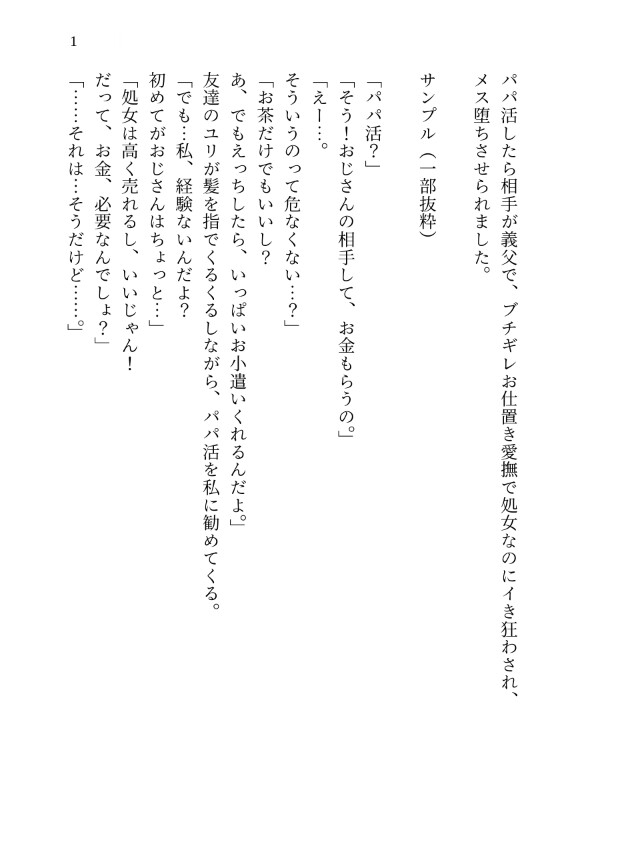 1
パパ活したら相手が義父で、ブチギレお仕置き愛撫で処女なのにイき狂わされ、
メス堕ちさせられました。
サンプル（一部抜粋）
「パパ活？」
「そう！おじさんの相手して、お金もらうの。」
「えー…。
そういうのって危なくない…？」
「お茶だけでもいいし？
あ、でもえっちしたら、いっぱいお小遣いくれるんだよ。」
友達のユリが髪を指でくるくるしながら、パパ活を私に勧めてくる。
「でも…私、経験ないんだよ？
初めてがおじさんはちょっと…」
「処女は高く売れるし、いいじゃん！
だって、お金、必要なんでしょ？」
「……それは…そうだけど……。」